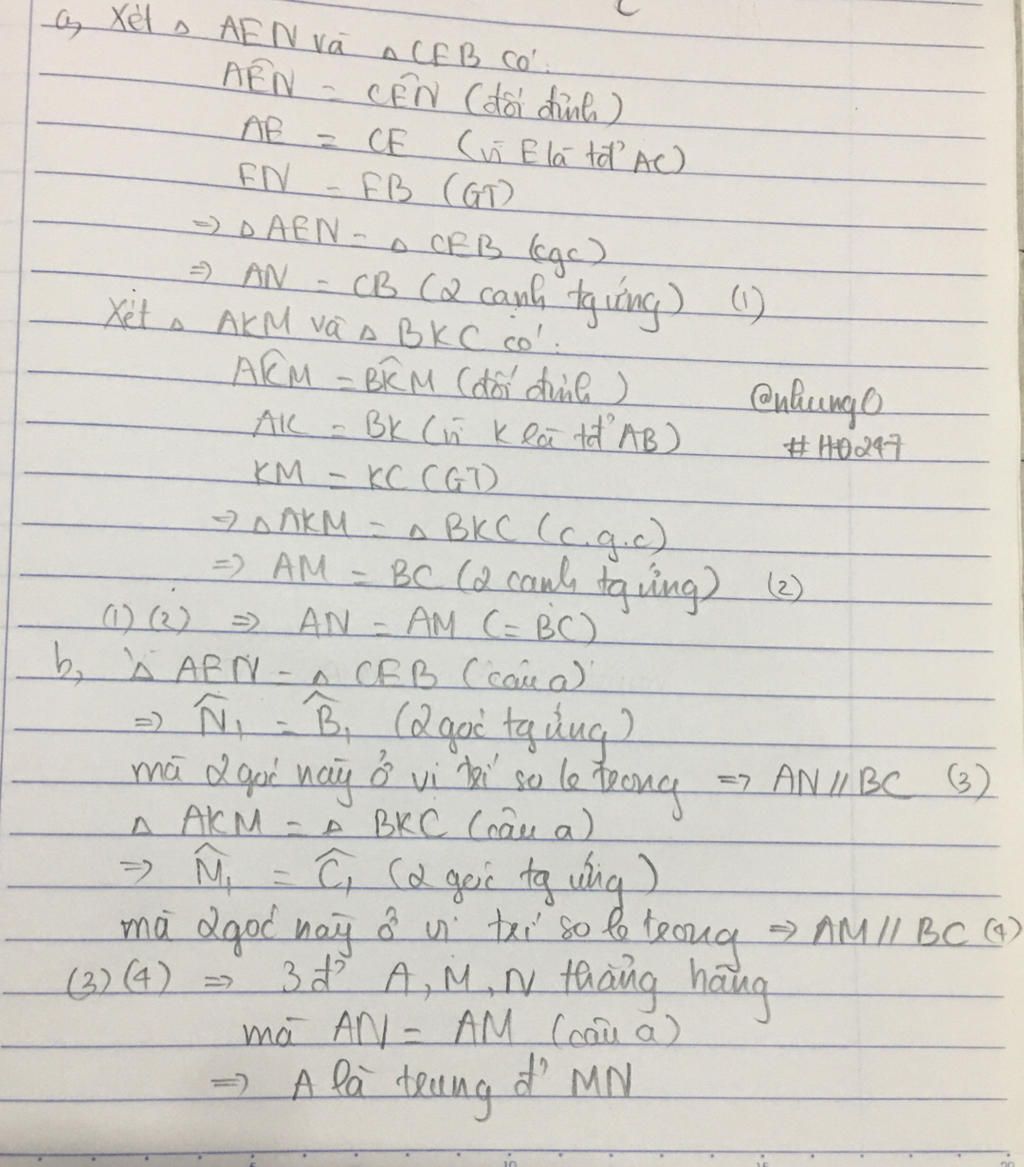 c
a, Xét △ AEN và △ CEB có:
AÊN = CÊN (đối đỉnh)
AE = CE (vì E là tđ' AC)
EN = EB (GT)
=> △ AEN = △ CEB (cgc)
=> AN = CB (2 cạnh tg ứng) (1)
Xét △ AKM và △ BKC có:
AK̂M = BK̂M (đối đỉnh)
@nhungO
AK = BK (vì K là tđ' AB)
#HD247
KM = KC (GT)
=> △ AKM = △ BKC (c.g.c)
=> AM = BC (2 cạnh tg ứng) (2)
(1) (2) => AN = AM (= BC)
b, △ AEN = △ CEB (câu a)
=> N̂₁ = B̂₁ (2 góc tg ứng)
mà 2 góc này ở vị trí so le trong => AN // BC (3)
△ AKM = △ BKC (câu a)
=> M̂₁ = Ĉ₁ (2 góc tg ứng)
mà 2 góc này ở vị trí so le trong => AM // BC (4)
(3) (4) => 3 đ' A, M, N thẳng hàng
mà AN = AM (câu a)
=> A là trung đ' MN